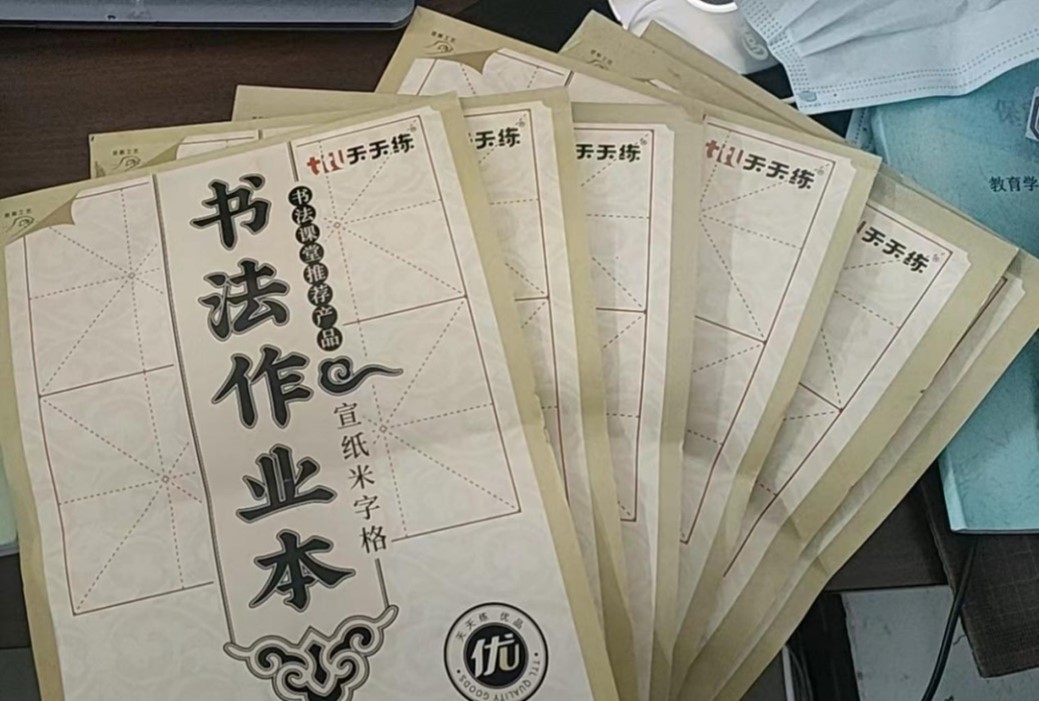 天天练
书法课堂推荐产品
书法作业本
宣纸米字格
天天练 优品
优
TTL QUALITY GOODS
天天练
天天练
天天练
天天练
教育学